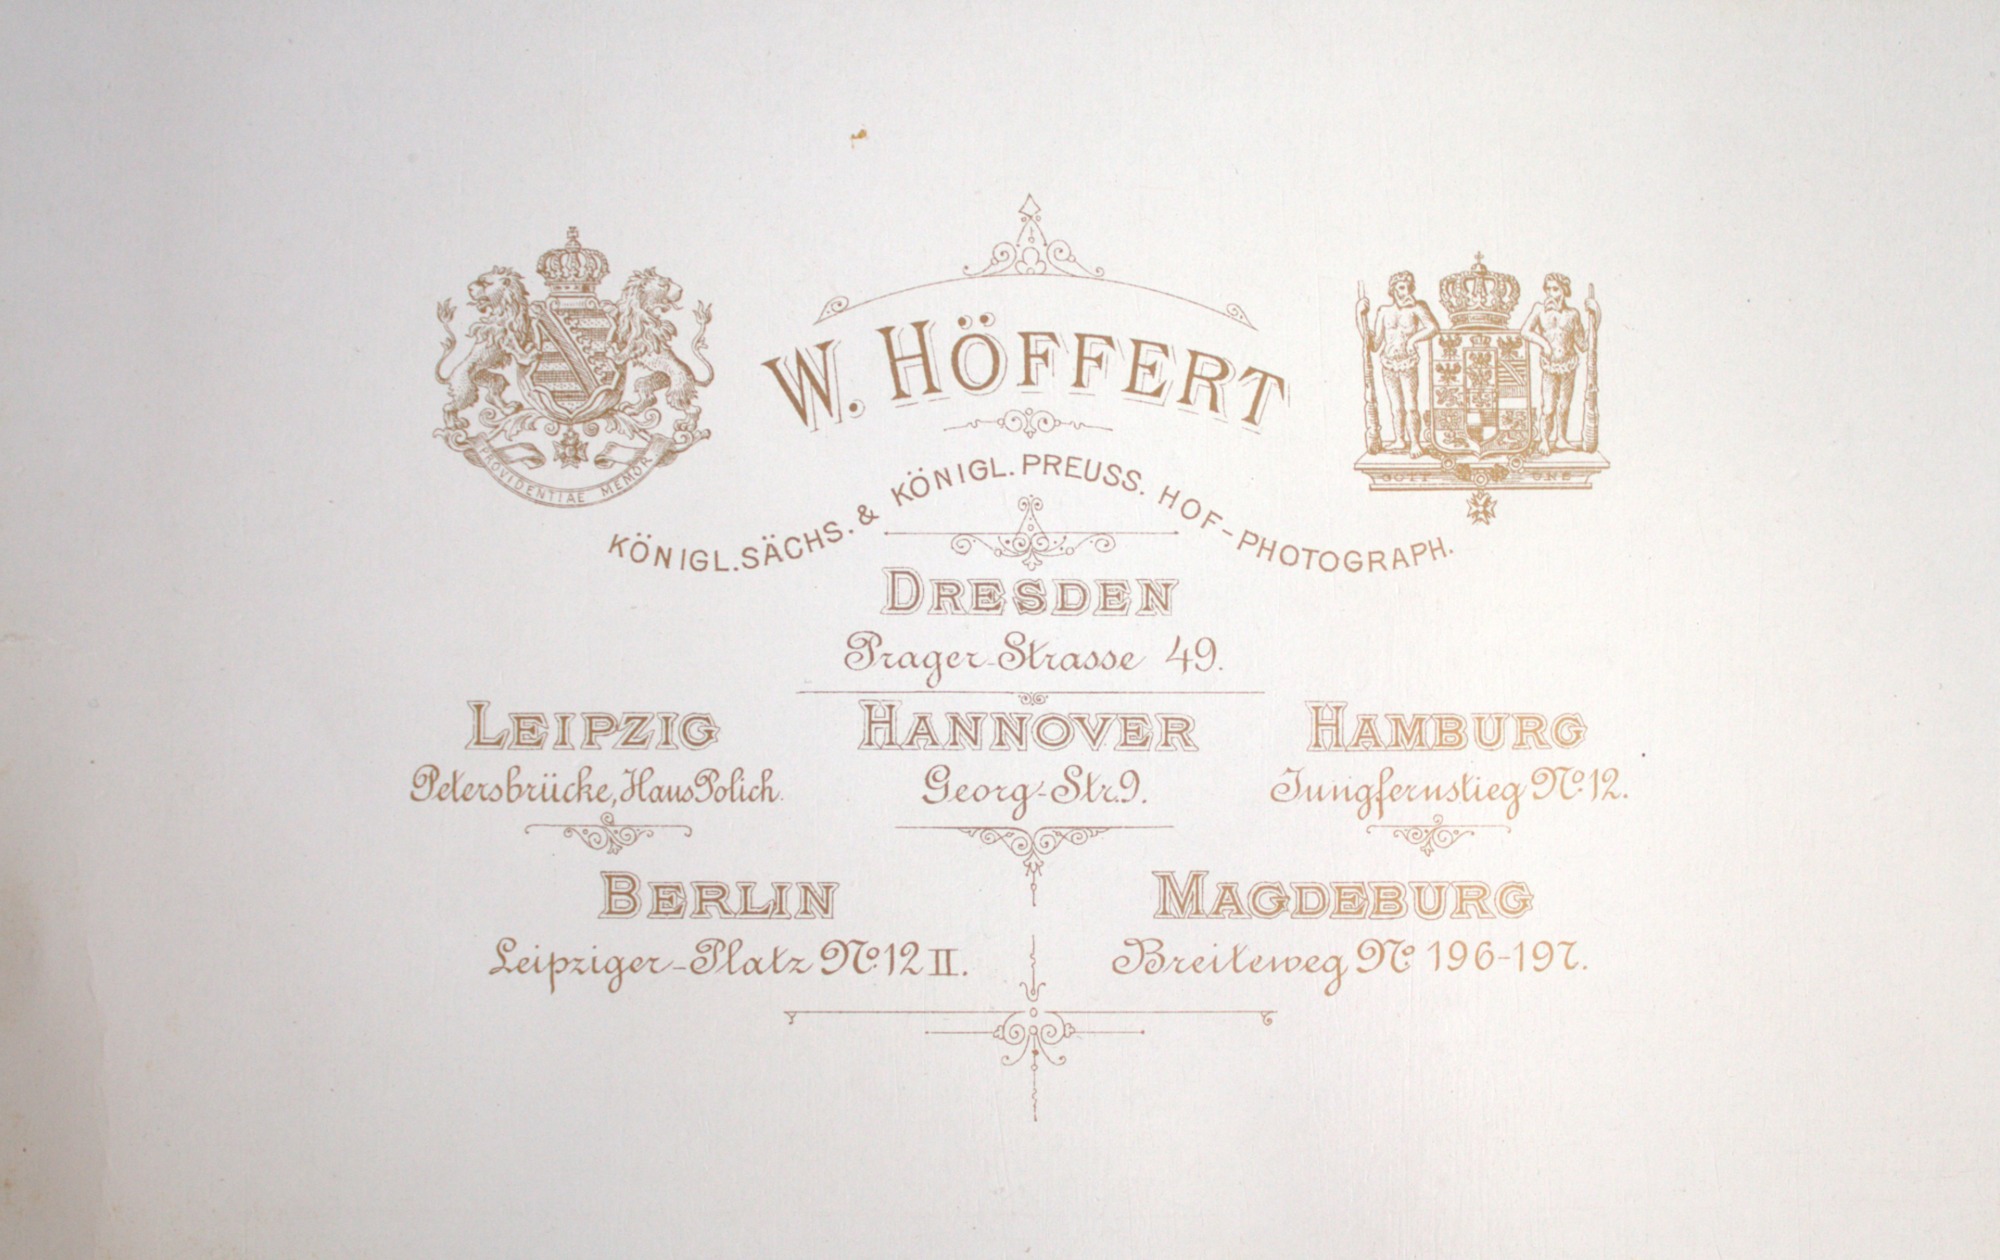 W. HÖFFERT
KÖNIGL. SÄCHS. & KÖNIGL. PREUSS. HOF-PHOTOGRAPH.
PROVIDENTIAE MEMOR
GOTT UNS
DRESDEN
Prager-Strasse 49.
LEIPZIG
Petersbrücke, Haus Polich.
HANNOVER
Georg-Str. 9.
HAMBURG
Jungfernstieg No. 12.
BERLIN
Leipziger-Platz No. 12 II.
MAGDEBURG
Breiteweg No. 196-197.